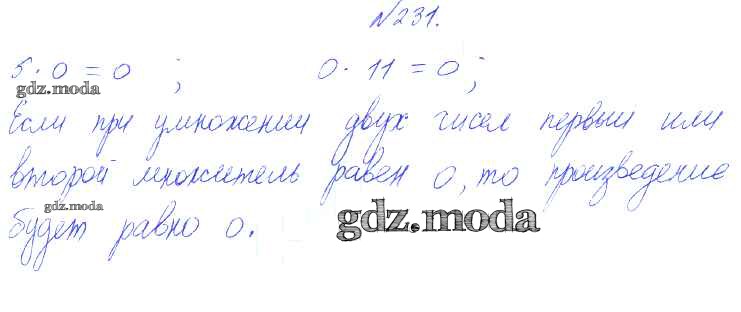 №231.
5 · 0 = 0 ; 0 · 11 = 0 ;
gdz.moda
Если при умножении двух чисел первый или
второй множитель равен 0, то произведение
gdz.moda
будет равно 0.
gdz.moda